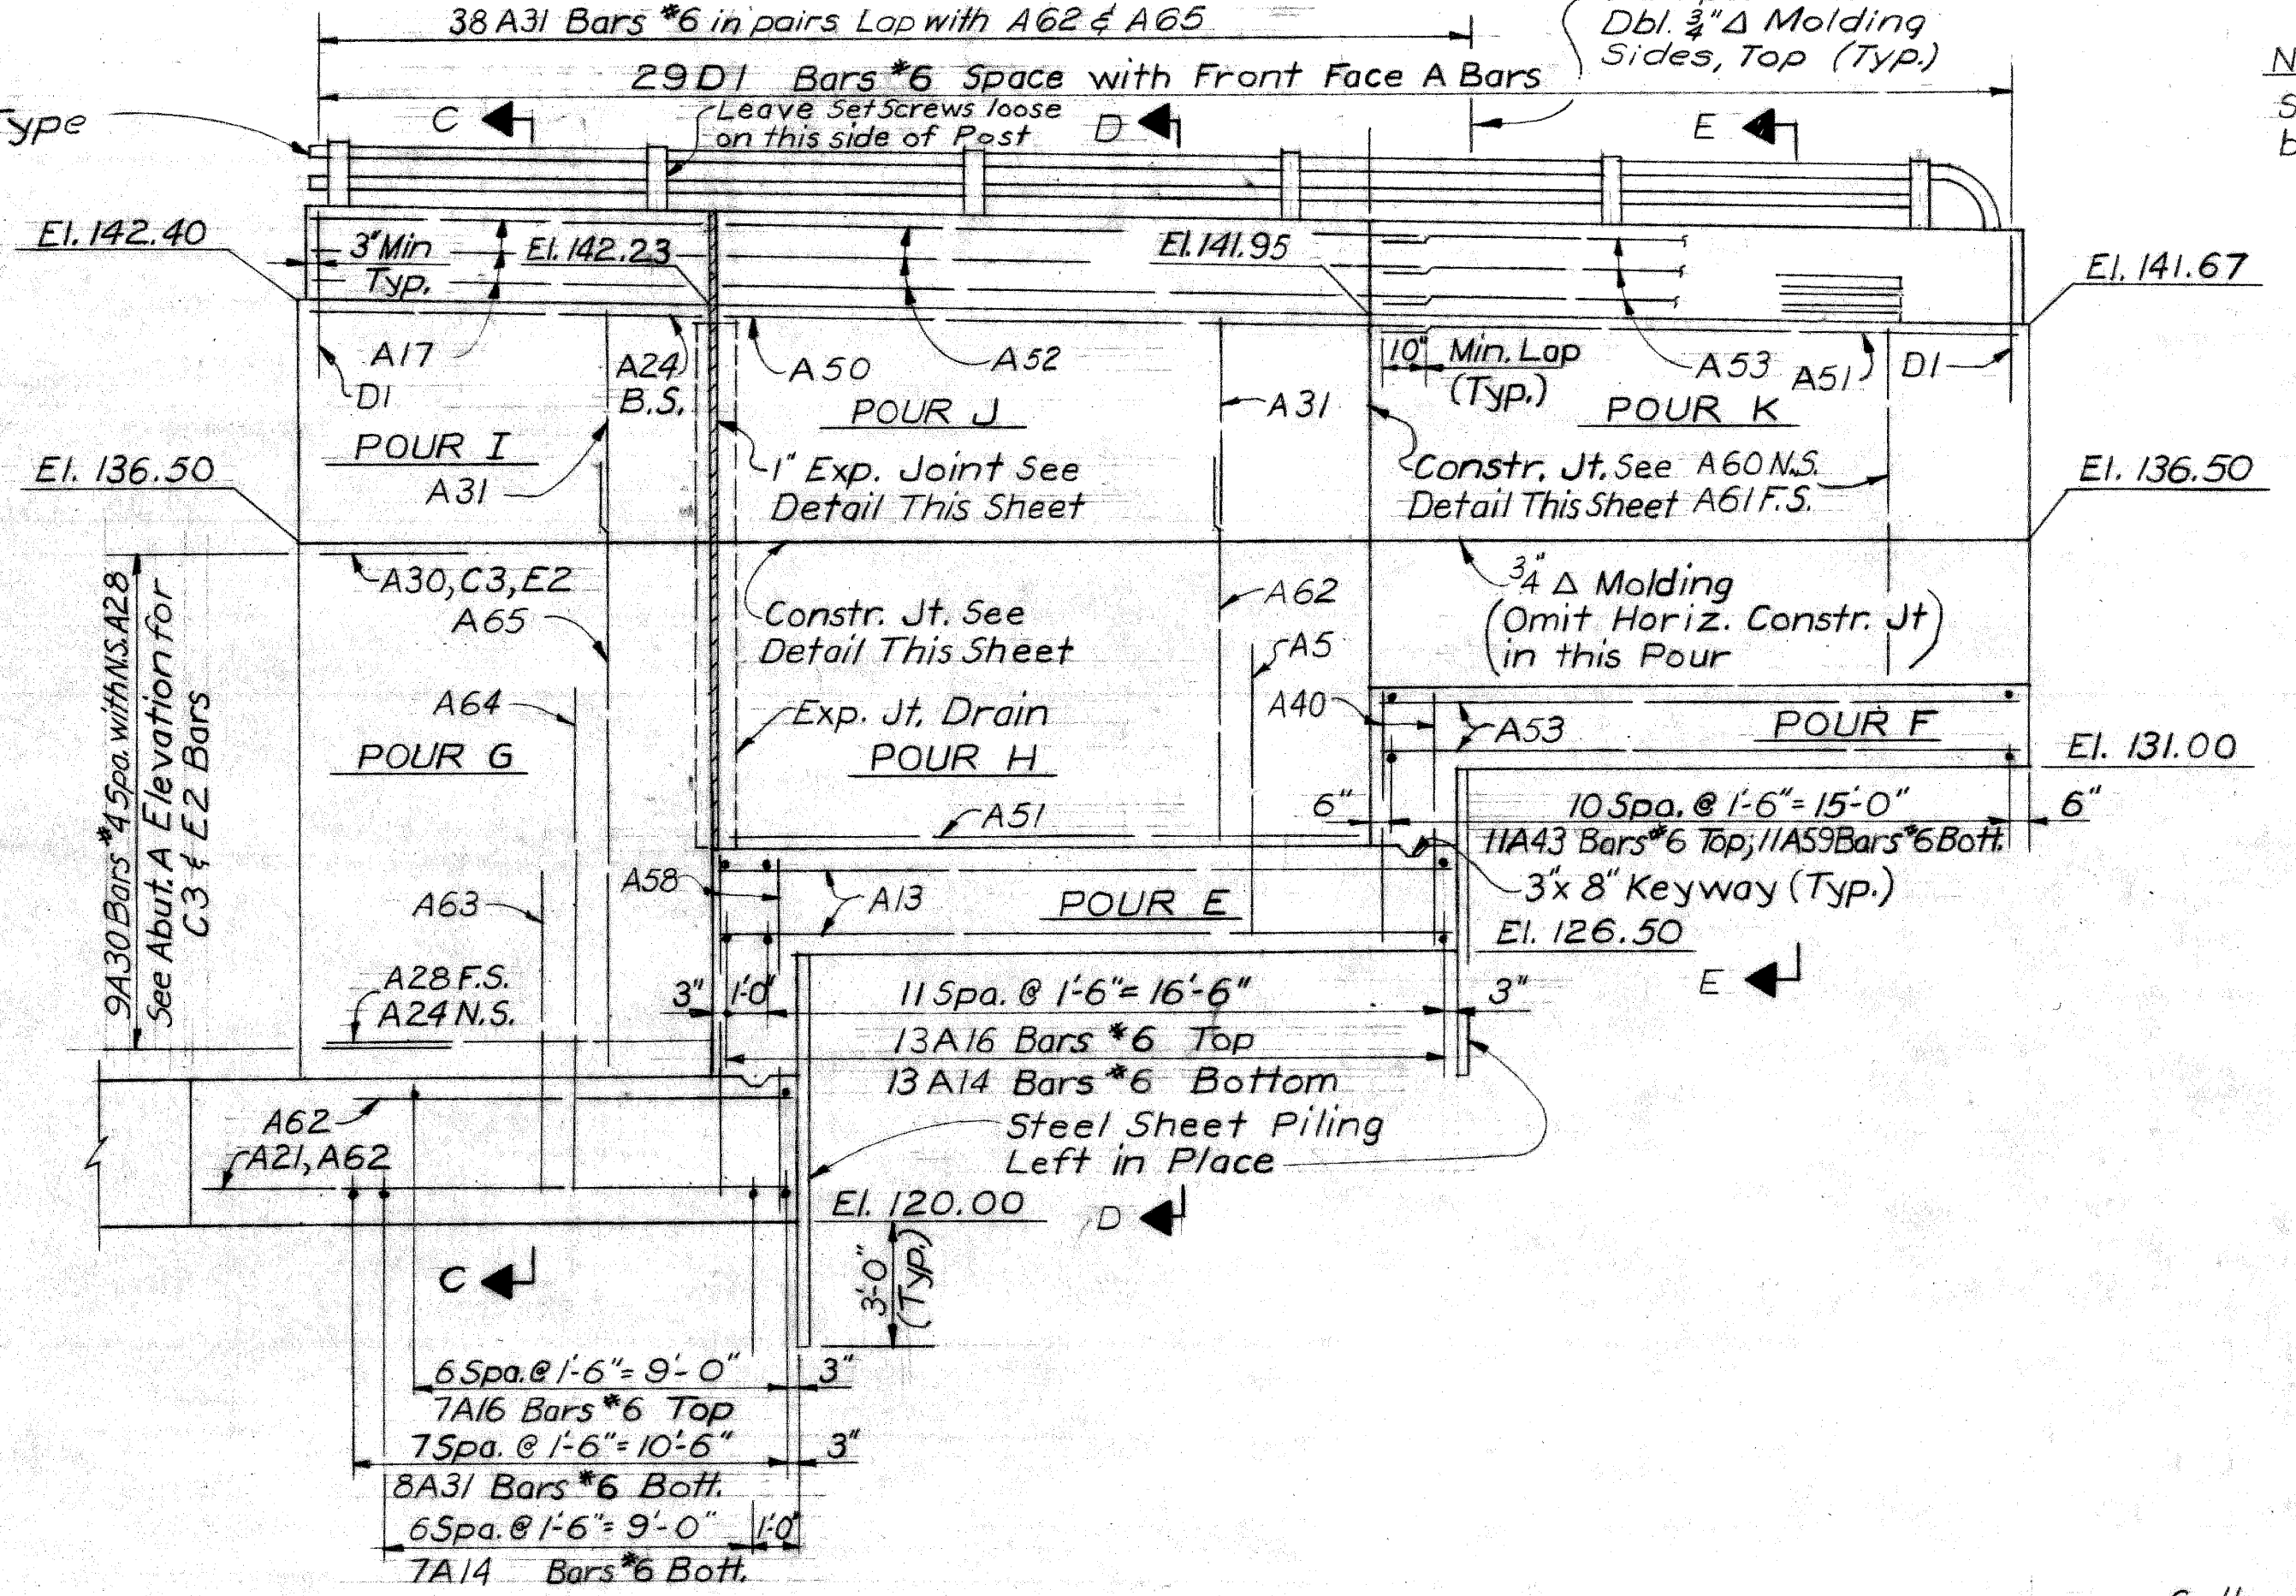 38 A31 Bars #6 in pairs Lap with A62 & A65
Dbl. 3/4" Δ Molding
Sides, Top (Typ.)
29 D1 Bars #6 Space with Front Face A Bars
Type
C
Leave Set Screws loose
on this side of Post
D
E
El. 142.40
3" Min
Typ.
El. 142.23
El. 141.95
El. 141.67
A17
D1
A24
B.S.
A50
A52
10" Min. Lap
(Typ.)
A53
A51
D1
POUR I
POUR J
A31
POUR K
El. 136.50
A31
1" Exp. Joint See
Detail This Sheet
Constr. Jt. See
Detail This Sheet
A60 N.S.
A61 F.S.
El. 136.50
9A30 Bars #4 Spa. with N.S. A28
See Abut. A Elevation for
C3 & E2 Bars
A30, C3, E2
A65
Constr. Jt. See
Detail This Sheet
A62
A5
3/4 Δ Molding
(Omit Horiz. Constr. Jt
in this Pour)
A64
POUR G
Exp. Jt. Drain
POUR H
A40
A53
POUR F
El. 131.00
A51
6"
10 Spa. @ 1'-6" = 15'-0"
6"
11A43 Bars #6 Top; 11A59 Bars #6 Bott.
3" x 8" Keyway (Typ.)
A58
A13
POUR E
A63
El. 126.50
E
A28 F.S.
A24 N.S.
3"
1'-0"
11 Spa. @ 1'-6" = 16'-6"
3"
13 A16 Bars #6 Top
13 A14 Bars #6 Bottom
Steel Sheet Piling
Left in Place
A62
A21, A62
El. 120.00
D
C
3'-0"
(Typ.)
6 Spa. @ 1'-6" = 9'-0"
3"
7A16 Bars #6 Top
7 Spa. @ 1'-6" = 10'-6"
3"
8A31 Bars #6 Bott.
6 Spa. @ 1'-6" = 9'-0"
1'-0"
7A14 Bars #6 Bott.